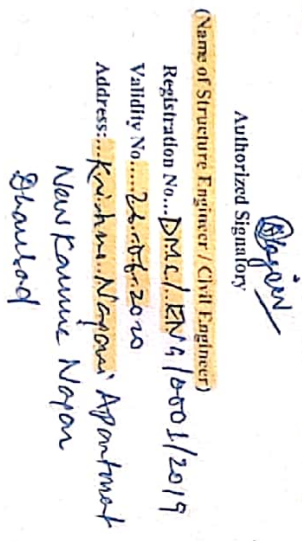 Authorized Signatory
(Name of Structure Engineer / Civil Engineer)
Registration No...DMC/ENG/0001/2019
Validity No.....26.06.2020
Address:...Krishna Nagari Apartment
New Karmic Nagar
Dhanbad